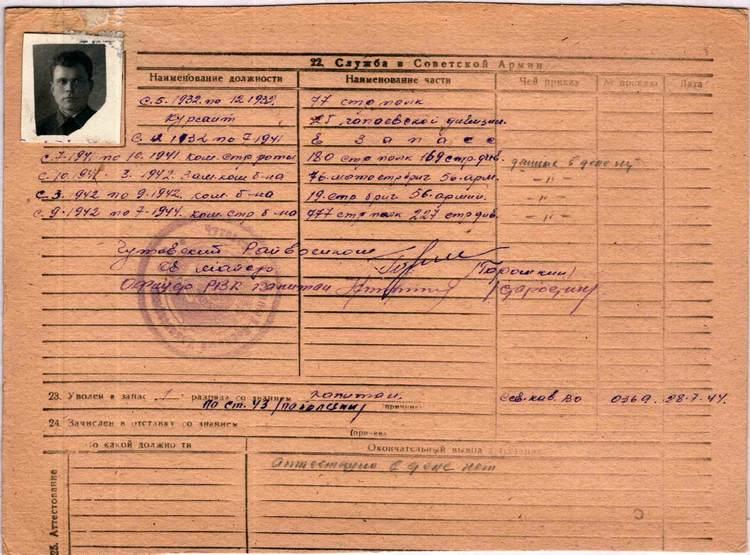 22. Служба в Советской Армии
Наименование должности Наименование части Чей приказ № приказа Дата
с.5.1932 по 12.1932 77 стр полк
Курсант 25 чапаевской дивизии
с 12 1932 по 7-1941 В запасе
с.7-1941 по 10.1941 ком.стр роты 180 стр полк 169 стр. див. данных в деле нет
с.10.1941 3.1942 зам.ком б-на 76 мотостр бриг 56 арм. – " –
с 3. 1942 по 9-1942. ком. б-на 19 стр бриг 56 армии. – " –
с 9-1942 по 7-1944. ком. стр б-на 777 стр полк 227 стр див. – " –
Чутовский Райвоенком
майор /Горошкин/
Офицер РВК капитан
23. Уволен в запас разряда со званием капитан. Сев. кав. ВО 0369. 28.7.44.
по ст. 43 /по болезни/ (причина)
24. Зачислен в отставку со званием
(причина)
По какой должности Окончательный вывод
25. Аттестование
аттестации в деле нет